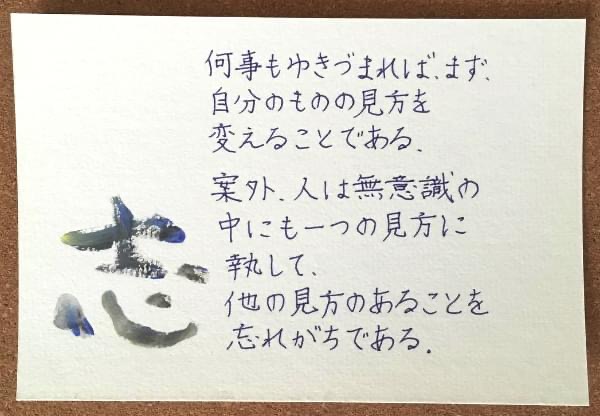 何事もゆきづまれば、まず、
自分のものの見方を
変えることである。
案外、人は無意識の
中にも一つの見方に
執して、
他の見方のあることを
忘れがちである。
志